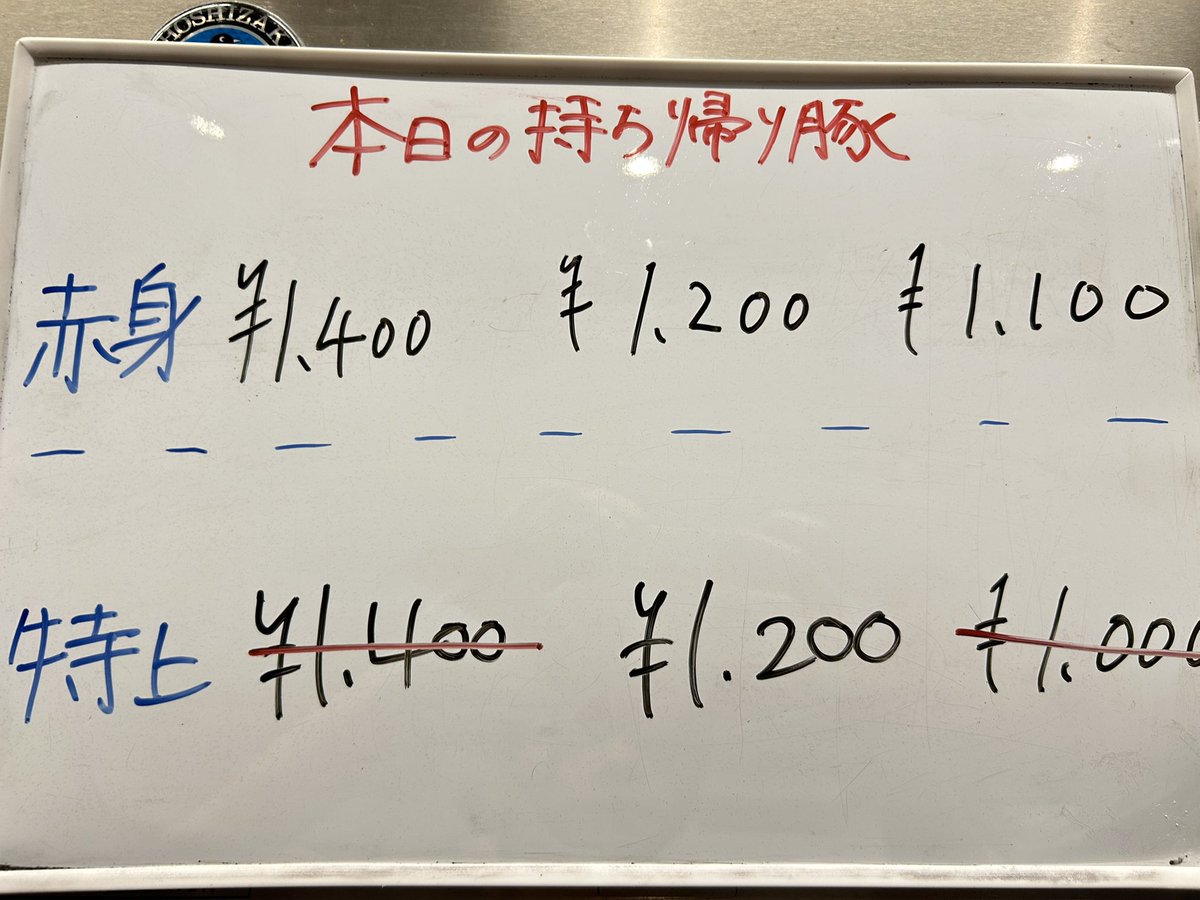 HOSHIZAK
本日の持ち帰り豚
赤身 ¥1.400 ¥1.200 ¥1.100
特上 ¥1.400 ¥1.200 ¥1.000